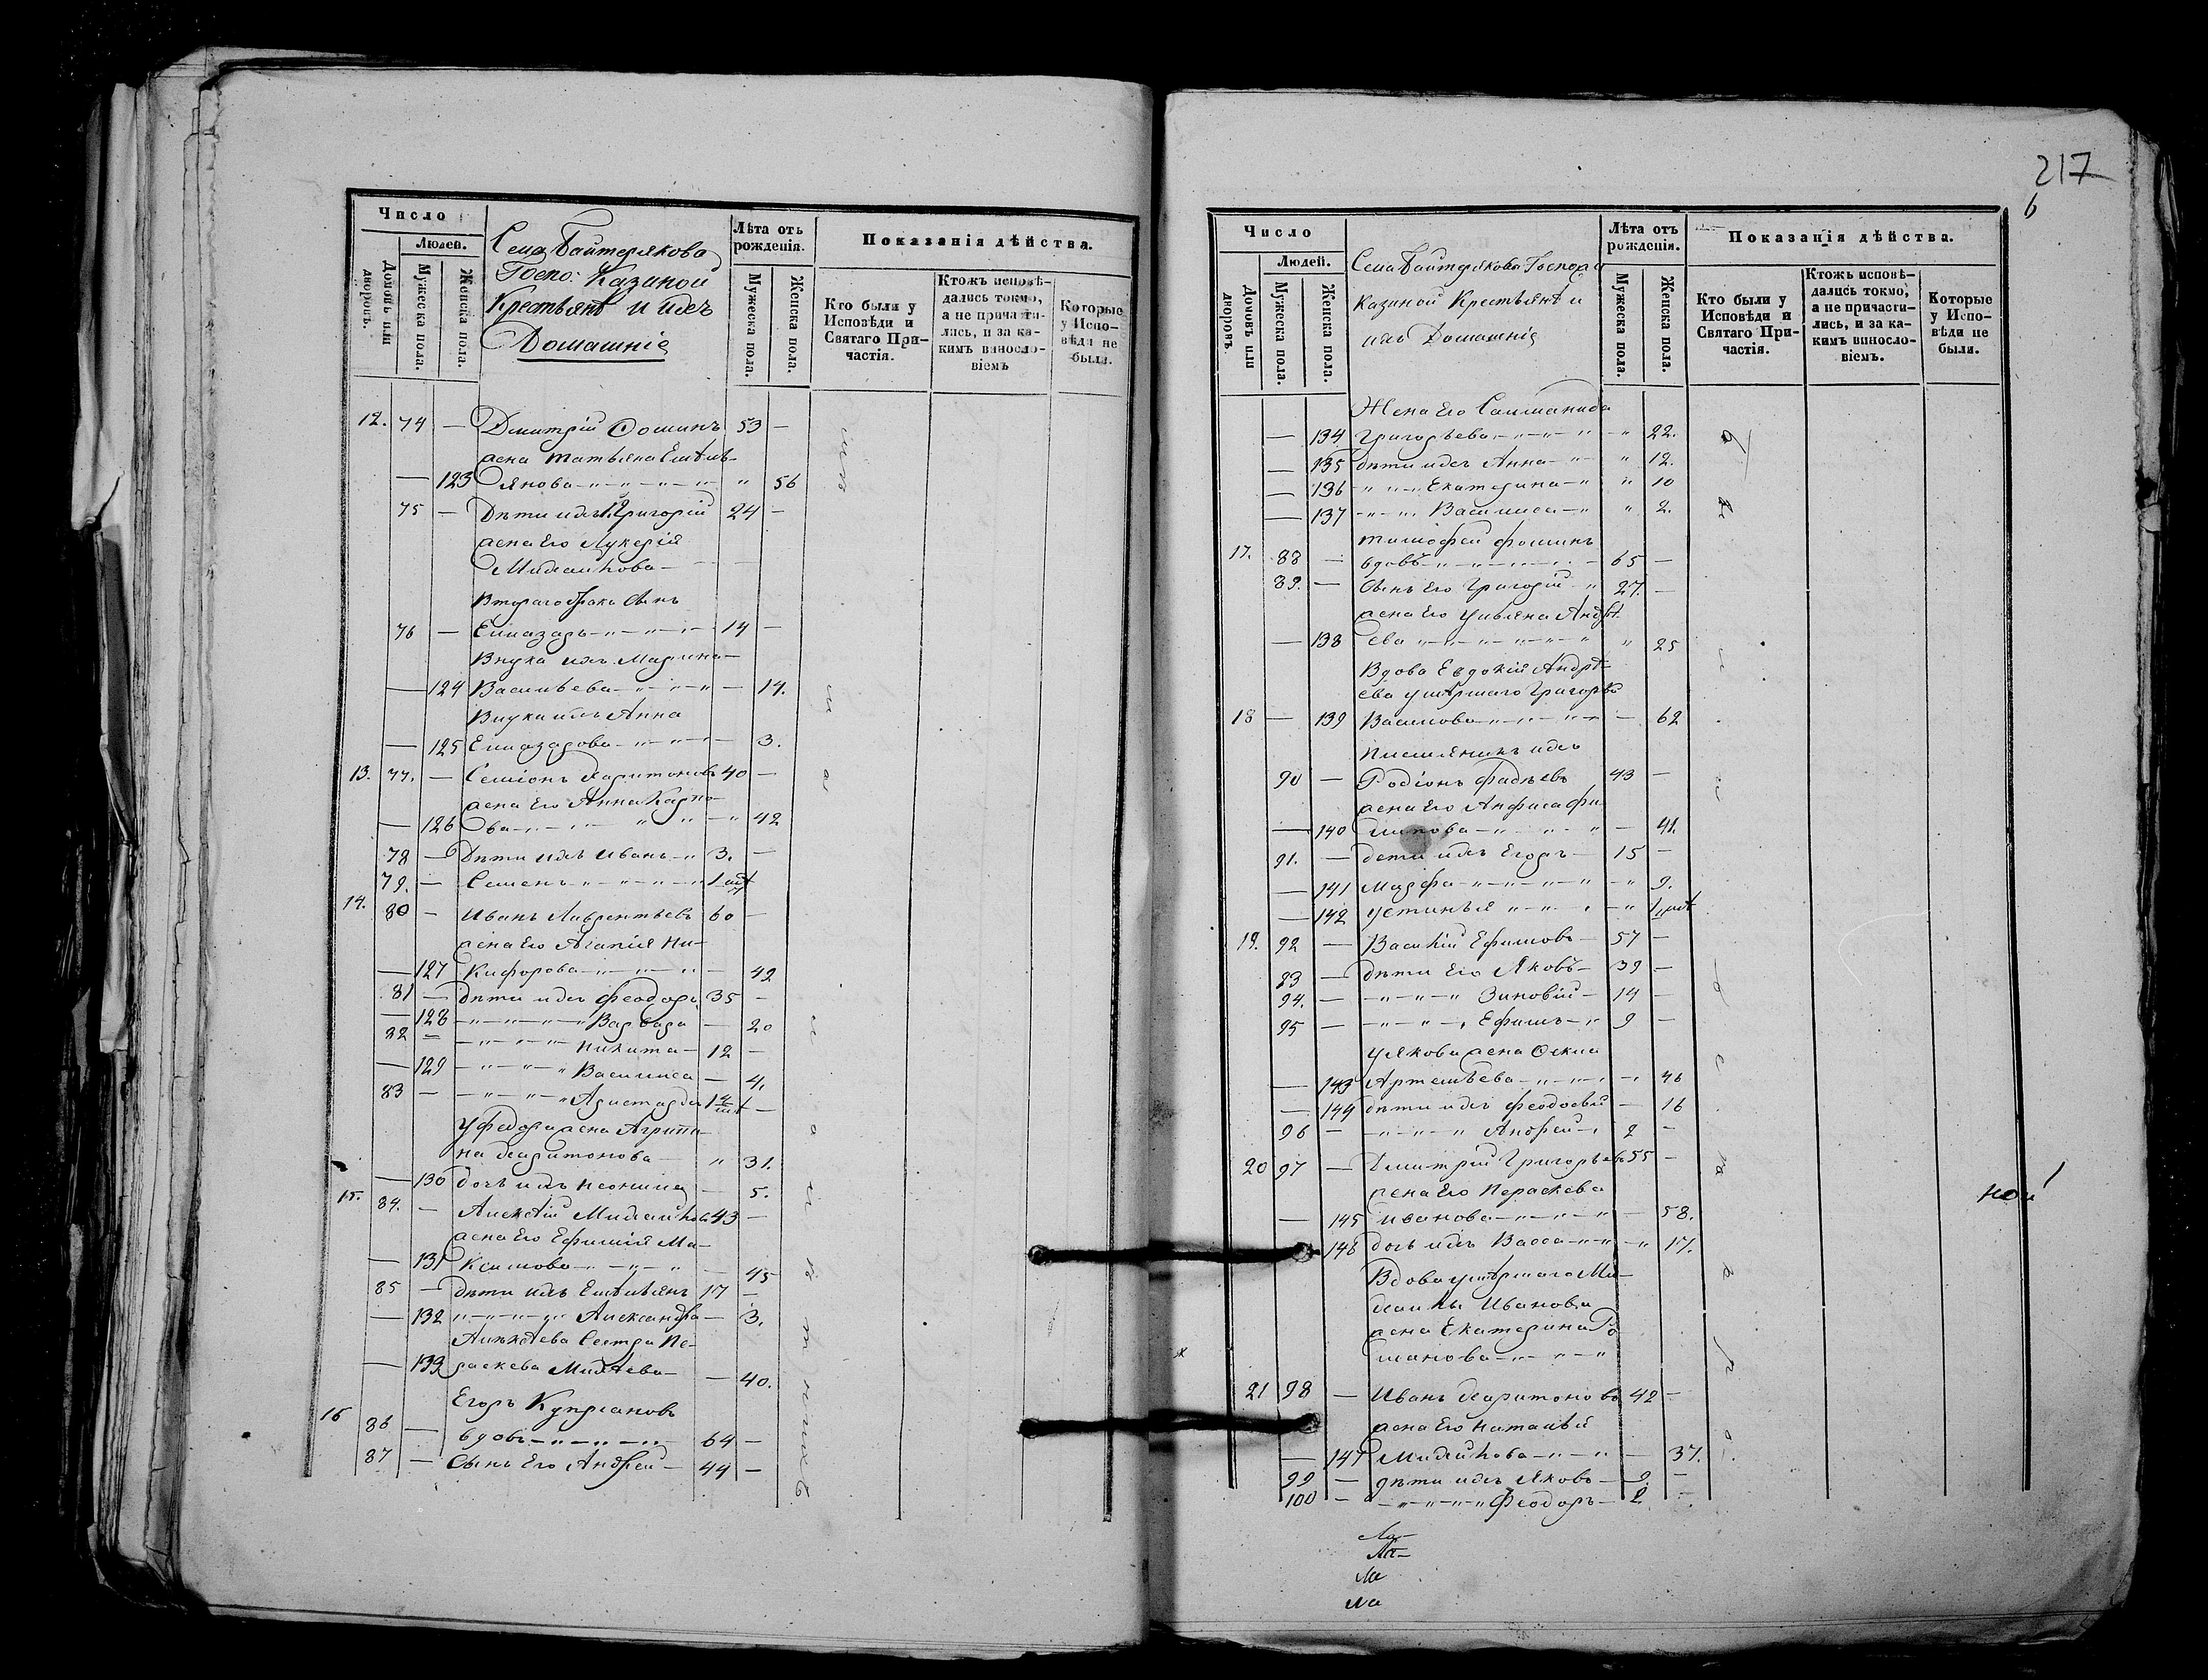 Число
Людей.
Домовъ или дворовъ.
Мужеска пола.
Женска пола.
Села Байтерякова
Госпо: Казиной
Крестьянѣ и ихъ
Домашніе
Лѣта отъ рожденія.
Мужеска пола.
Женска пола.
Показанія дѣйства.
Кто были у Исповѣди и Святаго Причастія.
Ктожъ исповѣдались токмо, а не причастились, и за какимъ винословіемъ
Которые у Исповѣди не были.
12. 74 — Дмитрій Фоминъ 53 —
жена Татьяна Емѣль-
— 123 янова „ 56
75 — Дѣти ихъ 1. Григорій 24 —
жена Его Лукерія
Михайлова
Втораго брака Сынъ
76 — Елиазаръ 14 —
Внука ихъ Марина
— 124 Васильева — 14.
Внука ихъ Анна
— 125 Елиазарова — 3.
13. 77. — Семіонъ Харитоновъ 40 —
жена Его Анна Карпо-
— 126 ва „ 42
78 — Дѣти ихъ Иванъ 3. —
79. — Семенъ 1
14. 80 — Иванъ Лаврентьевъ 60 —
жена Его Агапія Ни-
— 127 кифорова — 42
81 — дѣти ихъ Феодоръ 35 —
— 128 Варвара — 20
82 — Никита 12 —
— 129 Василиса — 4.
83 — 1
У Федора жена Агрипи-
на Харитонова „ 31.
— 130 дочь ихъ — 5.
15. 84. — Алексѣй Михайлов 43 —
жена Его Ефимія Ма-
— 131 ксимова — 45
85 — дѣти ихъ Емѣльянъ 17 —
— 132 Александра — 3.
Алексѣева Сестра Пе-
— 133 раскева Михѣева — 40.
16 Егоръ Купріановъ
86 — вдовъ 64 —
87 — Сынъ Его Андрей 44 —
217
6
Число
Людей.
Домовъ или дворовъ.
Мужеска пола.
Женска пола.
Села Байтерякова Госпожи
Казиной Крестьянѣ и
ихъ Домашніе
Лѣта отъ рожденія.
Мужеска пола.
Женска пола.
Показанія дѣйства.
Кто были у Исповѣди и Святаго Причастія.
Ктожъ исповѣдались токмо, а не причастились, и за какимъ винословіемъ.
Которые у Исповѣди не были.
Жена Его Саломанида
— 134 Григорьева „ 22.
— 135 дѣти ихъ Анна „ 12.
— 136 Екатерина „ 10
— 137 Василиса „ 2.
Тимофей Фоминъ
17. 88 — вдовъ 65 —
89. — Сынъ Его Григорій 27. —
жена Его Ульяна Андрѣ-
— 138 ева „ 25
Вдова Евдокія Андрѣ-
ева умѣршаго Григорья
18 — 139 Василова — 62
Племяникъ ихъ
90 — Родіонъ Фадѣевъ 43 —
жена Его Анфиса Фи-
— 140 липова — 41.
91. — дети ихъ Егоръ 15 —
— 141 Марфа „ 9.
— 142 Устинья „ 1
19. 92 — Василій Ефимовъ 57 —
93 — дѣти Его Яковъ 39 —
94. — Зиновій 14 —
95 — Ефимъ 9 —
У Якова жена Фекла
— 143 Артемьева 46
— 144 дѣти ихъ Феодосья — 16
96 — Андрей 2 —
20 97 — Дмитрій Григорьевъ 55 —
жена Его Параскева
— 145 Иванова — 58.
— 146 дочь ихъ Васса „ 17.
Вдова умѣршаго Ми-
хайлы Иванова
жена Екатерина Ро-
манова
21 98 — Иванъ Харитоновъ 42 —
жена Его Наталья
— 147 Михайлова — 37.
99 — дѣти ихъ Яковъ 9. —
100 — Феодоръ 2 —